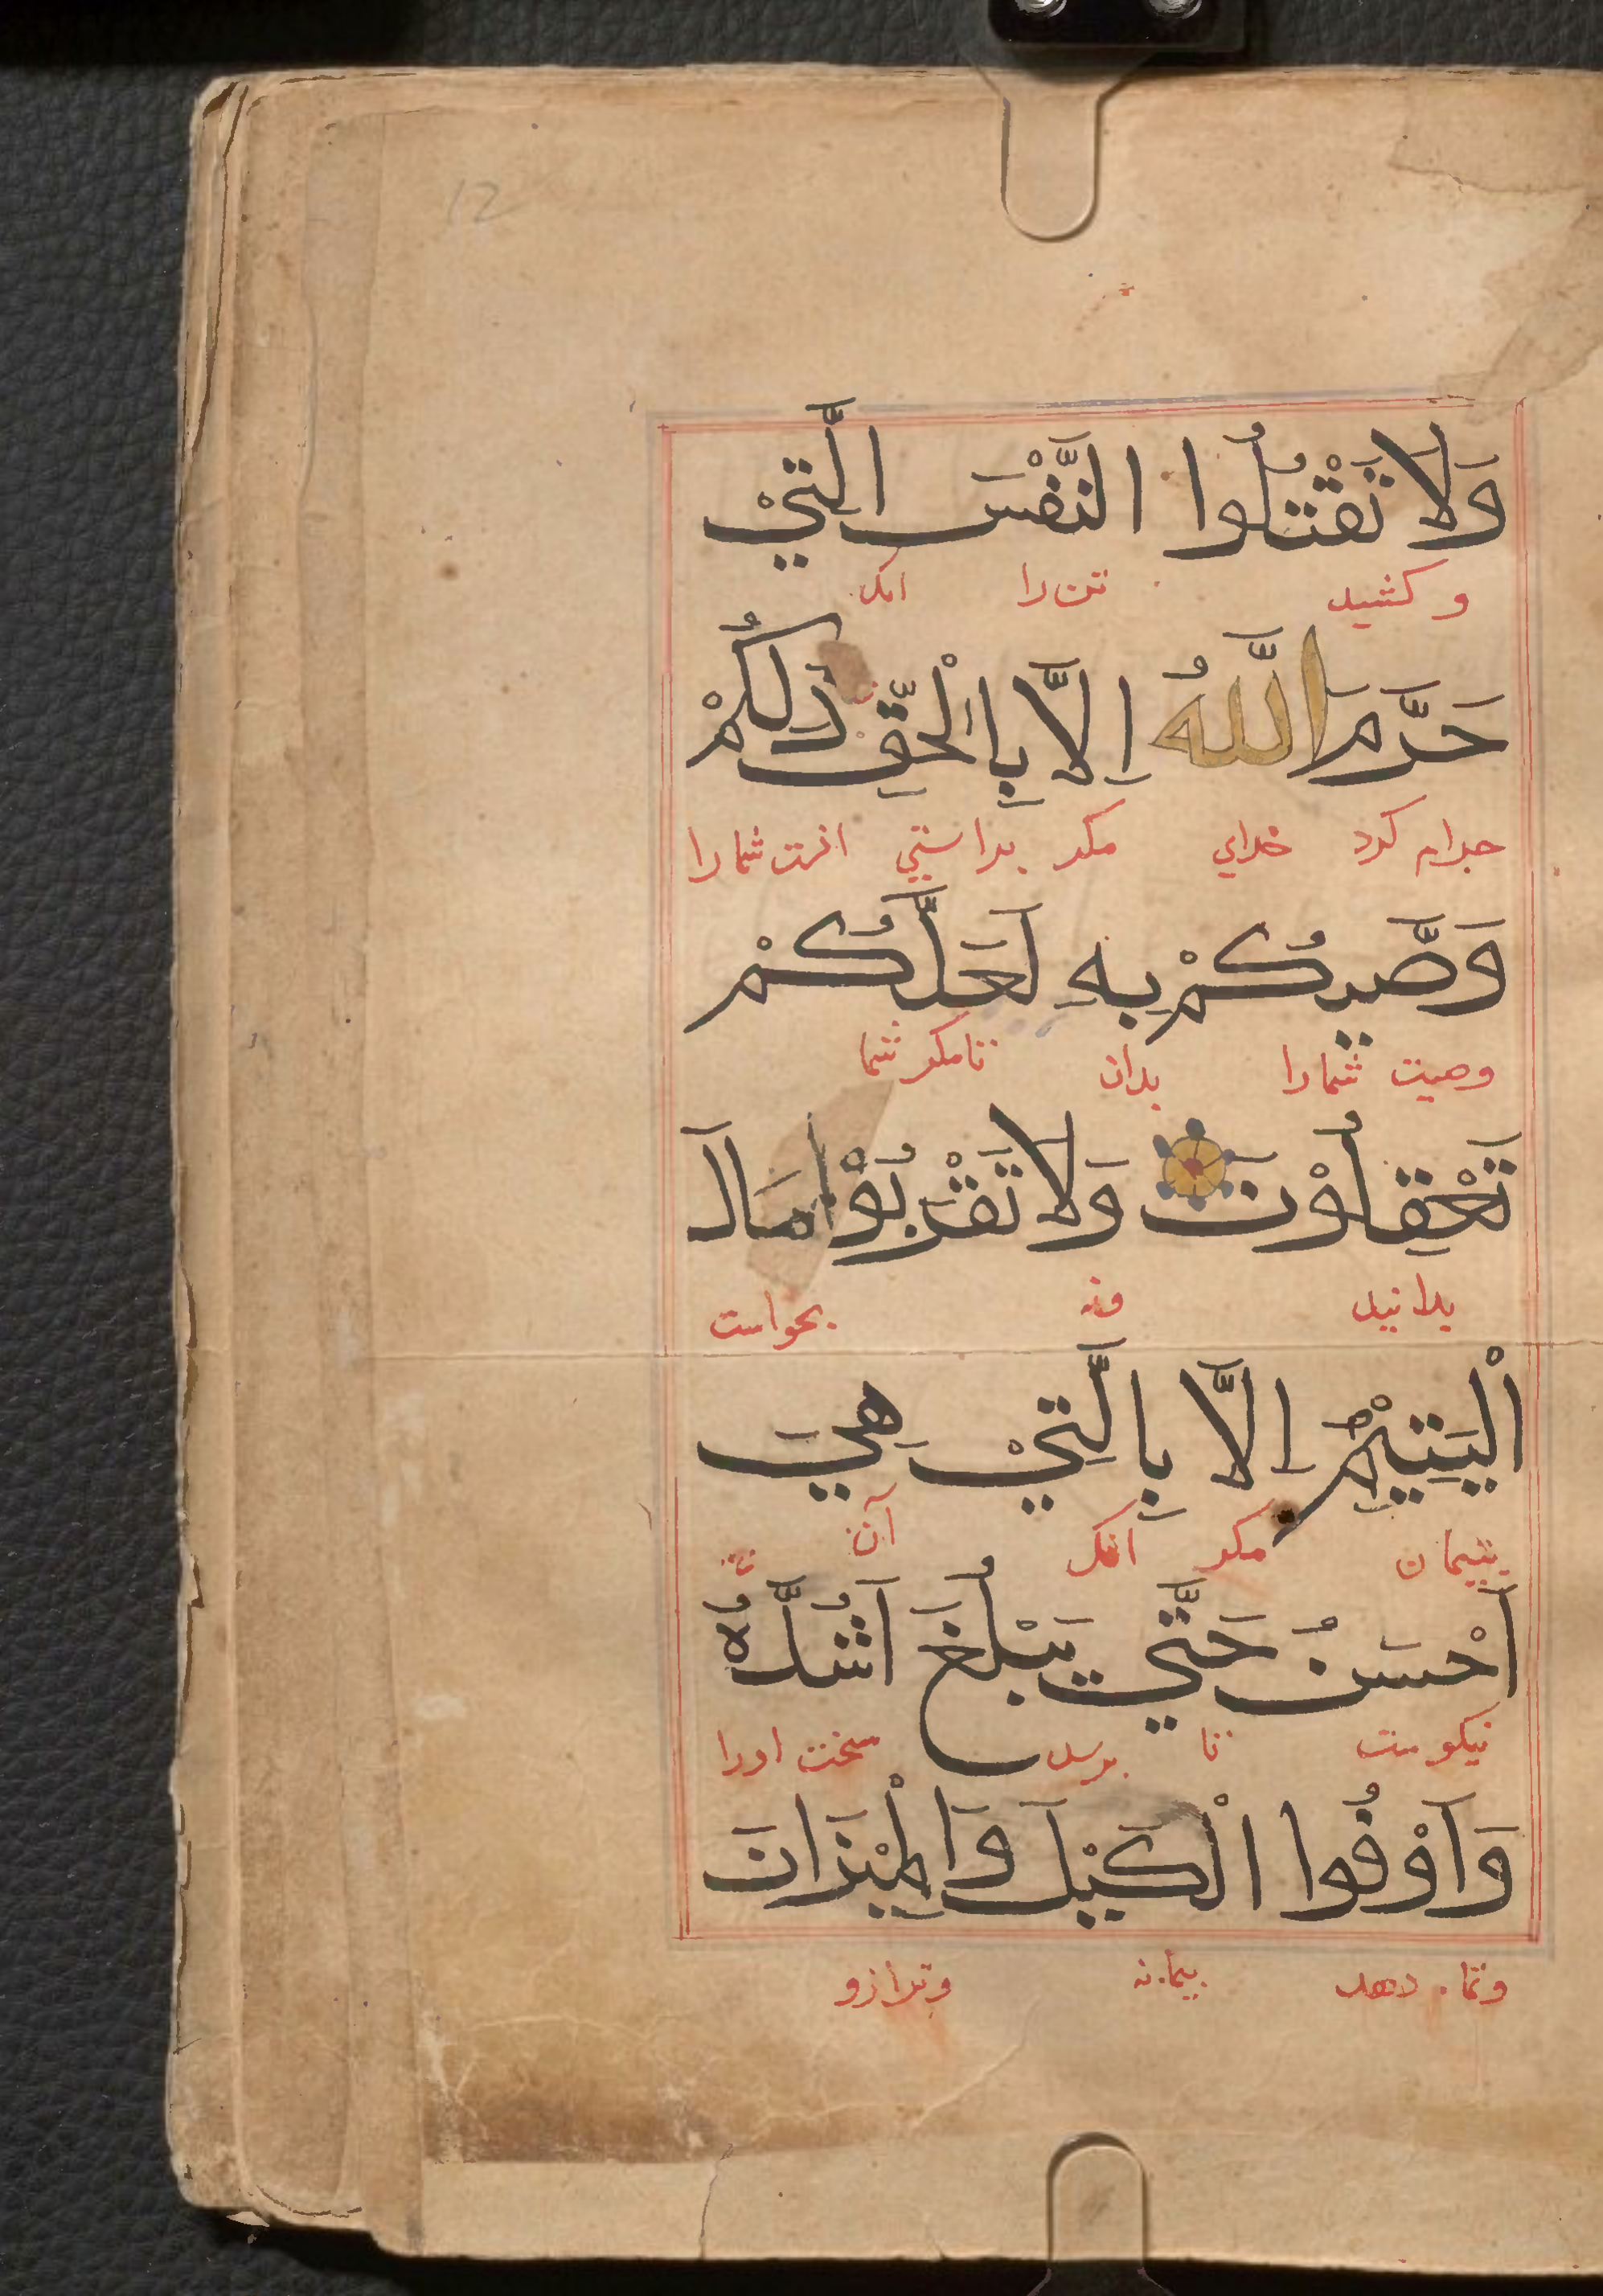 12
وَلَا تَقْتُلُوا النَّفْسَ الَّتِيْ
و كشيد تن را انك
حَرَّمَ اللَّهُ اِلَّا بِالْحَقِّ ذَلِكُمْ
حرام كرد خداي مكر براستي انست شما را
وَصَّيكُمْ بِهِ لَعَلَّكُمْ
وصيت شما را بدان تا مكر شما
تَعْقِلُوْنَ وَلَا تَقْرَبُوْا مَالَ
بدانيد ونه بخواست
الْيَتِيْمِ اِلَّا بِالَّتِيْ هِيَ
يتيمان مكر انك آن
اَحْسَنُ حَتَّي يَبْلُغَ اَشُدَّهُ
نيكو ست تا برسد سخت او را
وَاَوْفُوا الْكَيْلَ وَالْمِيْزَانَ
وتما دهد بيمانه وترازو